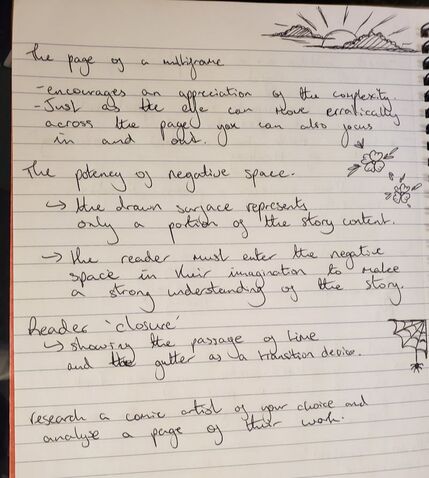 The page of a multiframe
- encourages an appreciation of the complexity.
- Just as the eye can move erratically
across the page you can also focus
in and out.
The potency of negative space.
→ the drawn surface represents
only a portion of the story content.
→ the reader must enter the negative
space in their imagination to make
a strong understanding of the story.
Reader 'closure'
→ showing the passage of time
and the gutter as a transition device.
research a comic artist of your choice and
analyse a page of their work.